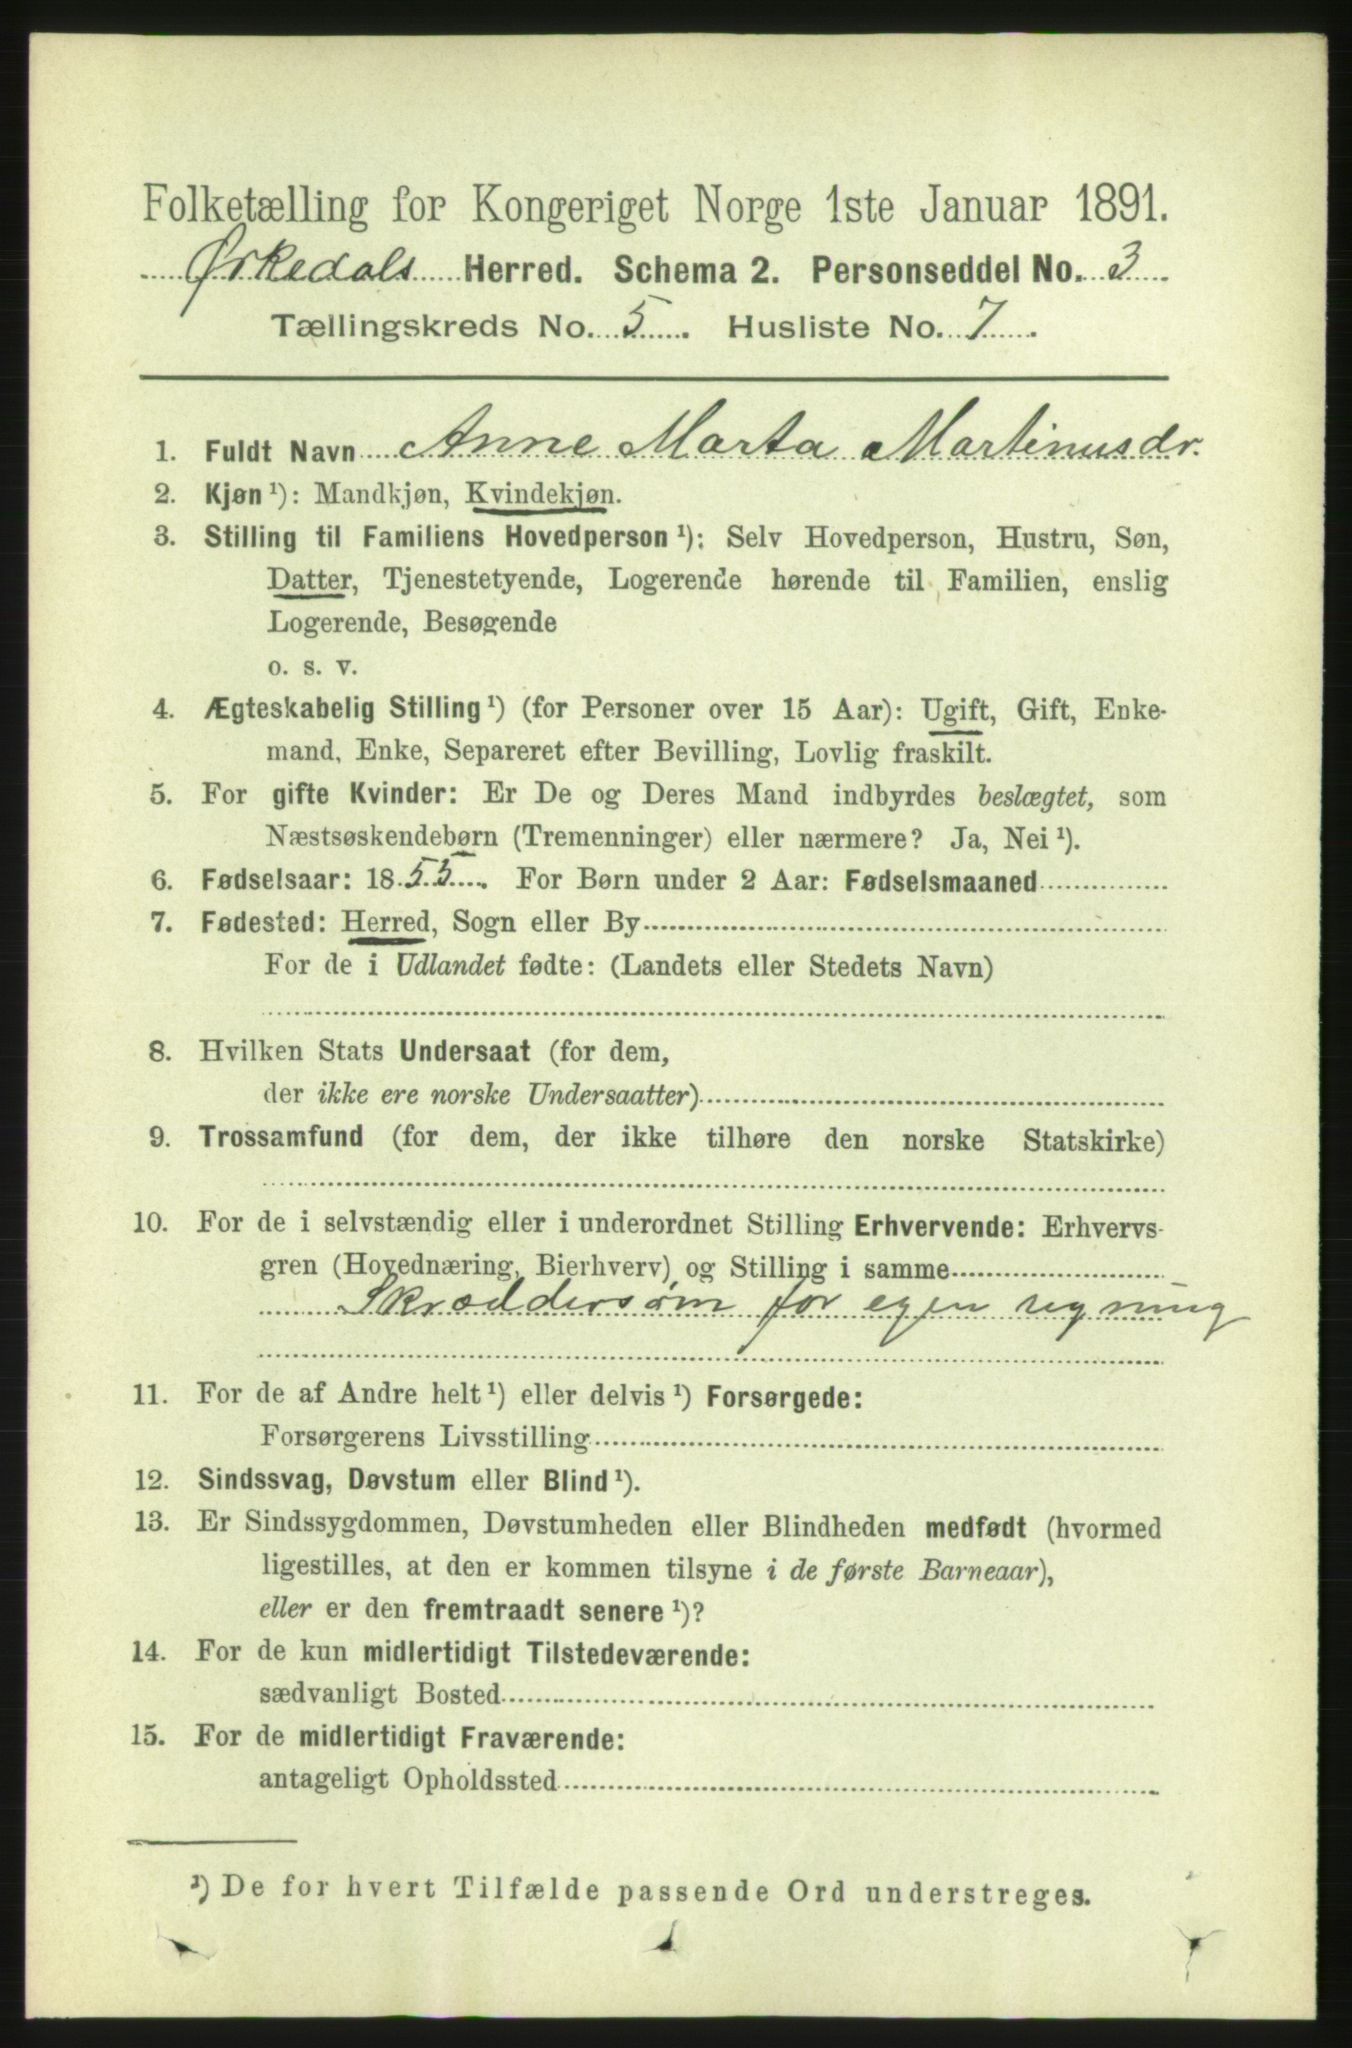 Folketælling for Kongeriget Norge 1ste Januar 1891.
Ørkedals Herred. Schema 2. Personseddel No. 3.
Tællingskreds No. 5. Husliste No. 7.
1. Fuldt Navn Anne Marta Martinusdr.
2. Kjøn ¹): Mandkjøn, Kvindekjøn.
3. Stilling til Familiens Hovedperson ¹): Selv Hovedperson, Hustru, Søn,
Datter, Tjenestetyende, Logerende hørende til Familien, enslig
Logerende, Besøgende
o. s. v.
4. Ægteskabelig Stilling ¹) (for Personer over 15 Aar): Ugift, Gift, Enke-
mand, Enke, Separeret efter Bevilling, Lovlig fraskilt.
5. For gifte Kvinder: Er De og Deres Mand indbyrdes beslægtet, som
Næstsøskendebørn (Tremenninger) eller nærmere? Ja, Nei ¹).
6. Fødselsaar: 1855. For Børn under 2 Aar: Fødselsmaaned
7. Fødested: Herred, Sogn eller By
For de i Udlandet fødte: (Landets eller Stedets Navn)
8. Hvilken Stats Undersaat (for dem,
der ikke ere norske Undersaatter)
9. Trossamfund (for dem, der ikke tilhøre den norske Statskirke)
10. For de i selvstændig eller i underordnet Stilling Erhvervende: Erhvervs-
gren (Hovednæring, Bierhverv) og Stilling i samme
Skræddersøm for egen regning
11. For de af Andre helt ¹) eller delvis ¹) Forsørgede:
Forsørgerens Livsstilling
12. Sindssvag, Døvstum eller Blind ¹).
13. Er Sindssygdommen, Døvstumheden eller Blindheden medfødt (hvormed
ligestilles, at den er kommen tilsyne i de første Barneaar),
eller er den fremtraadt senere ¹)?
14. For de kun midlertidigt Tilstedeværende:
sædvanligt Bosted
15. For de midlertidigt Fraværende:
antageligt Opholdssted
¹) De for hvert Tilfælde passende Ord understreges.